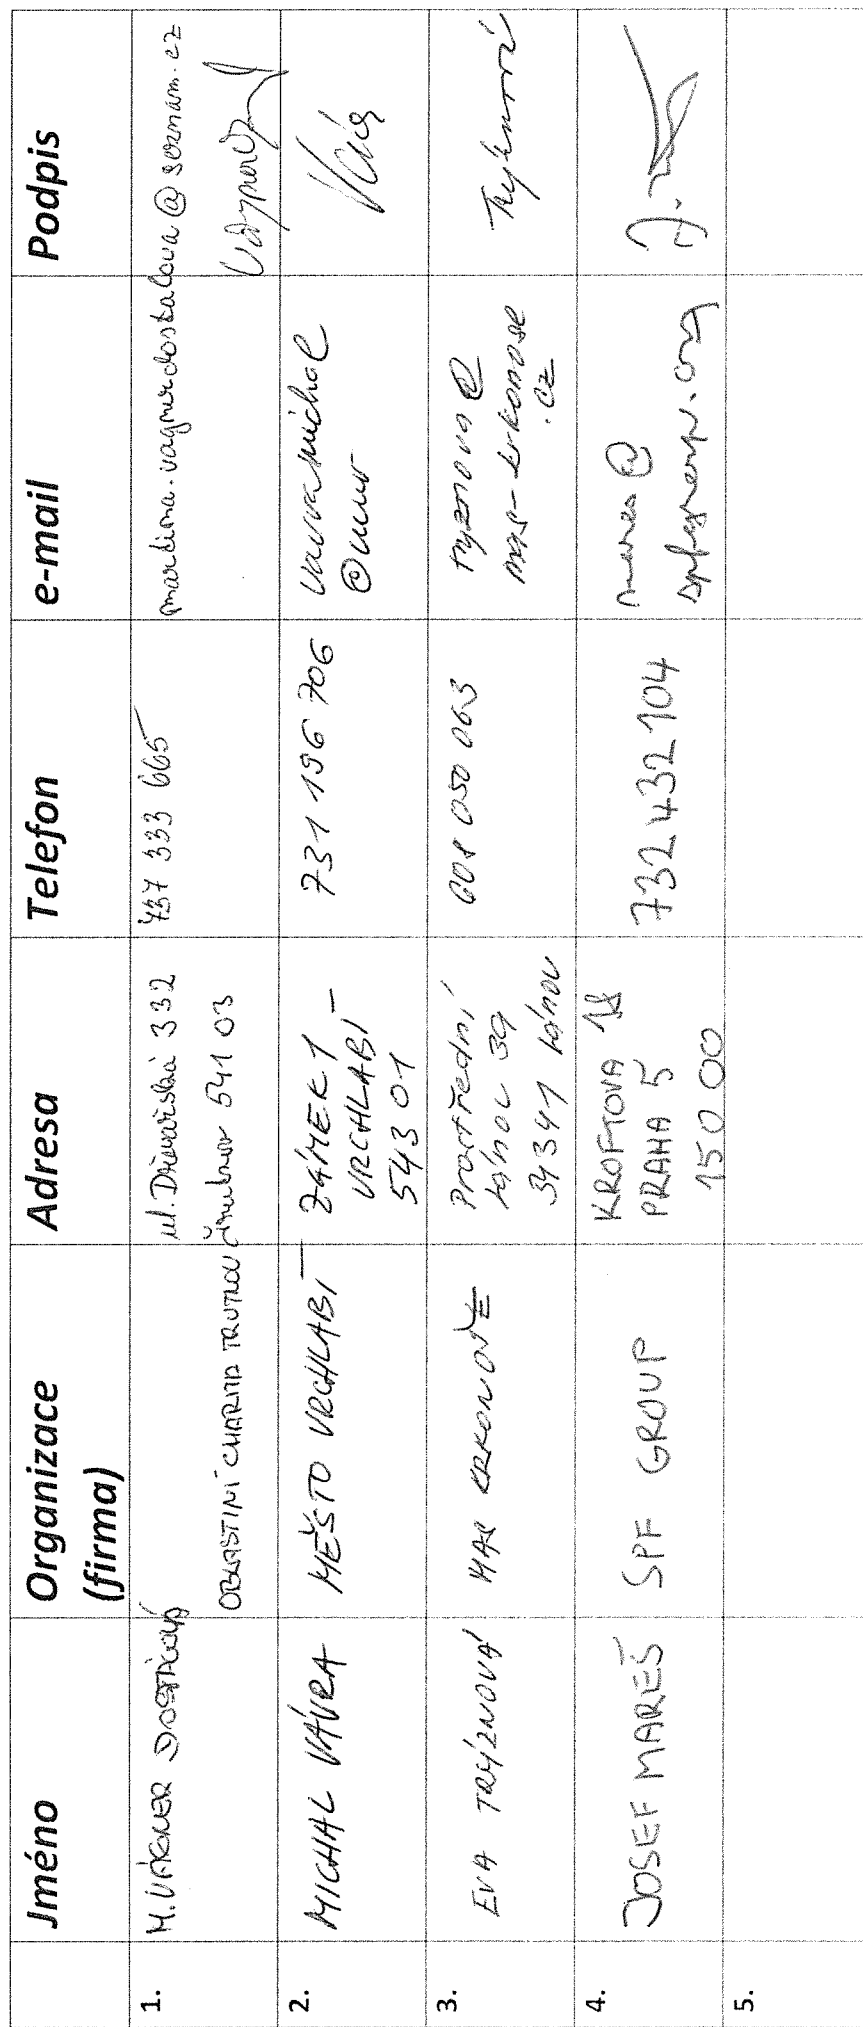 Jméno
Organizace
(firma)
Adresa
Telefon
e-mail
Podpis
1.
M. VÁGNER DOSTÁLOVÁ
OBLASTNÍ CHARITA TRUTNOV
ul. Dřevařská 332
541 03
737 333 665
martina.vagnerdostalova@seznam.cz
2.
MICHAL VÁVRA
MĚSTO VRCHLABÍ
ZÁMEK 1
VRCHLABÍ
543 01
731 196 706
vavramichal
3.
EVA TRÝZNOVÁ
MAS KRKONOŠE
Prostřední
Lánov 39
Lánov
608 050 063
tryznova@
mas-krkonose
.cz
4.
JOSEF MAREŠ
SPF GROUP
KROFTOVA
PRAHA 5
150 00
732 432 104
mares@
5.